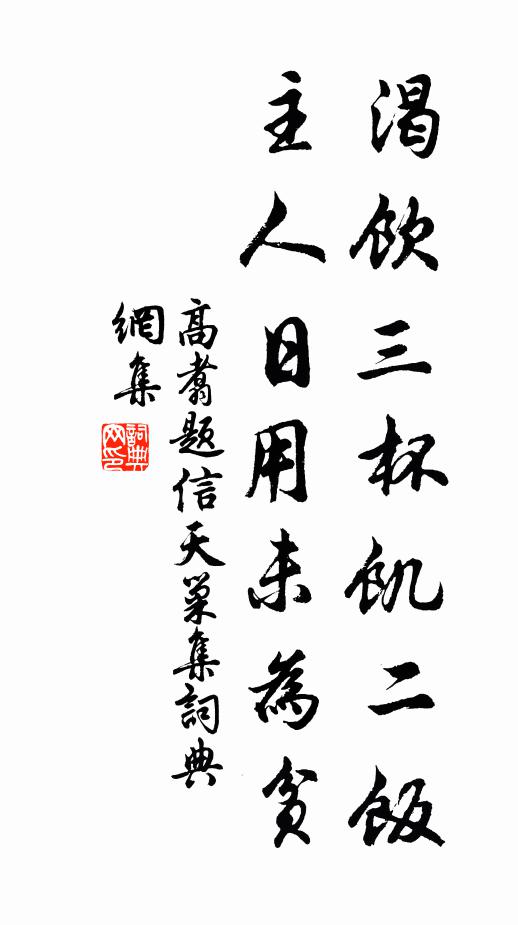 渴飲三杯飢二飯
主人日用未為貧
高翥題信天巢集詞典
網集
詞典網印